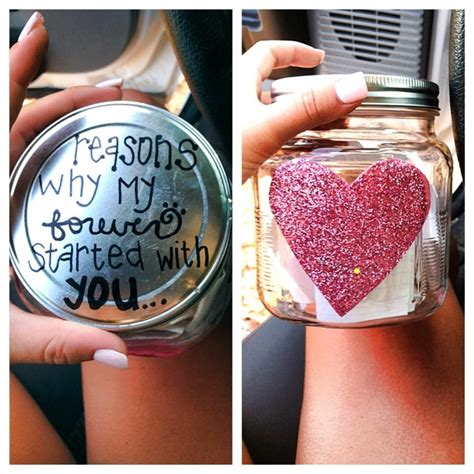 reasons
why my
forever
started with
you...